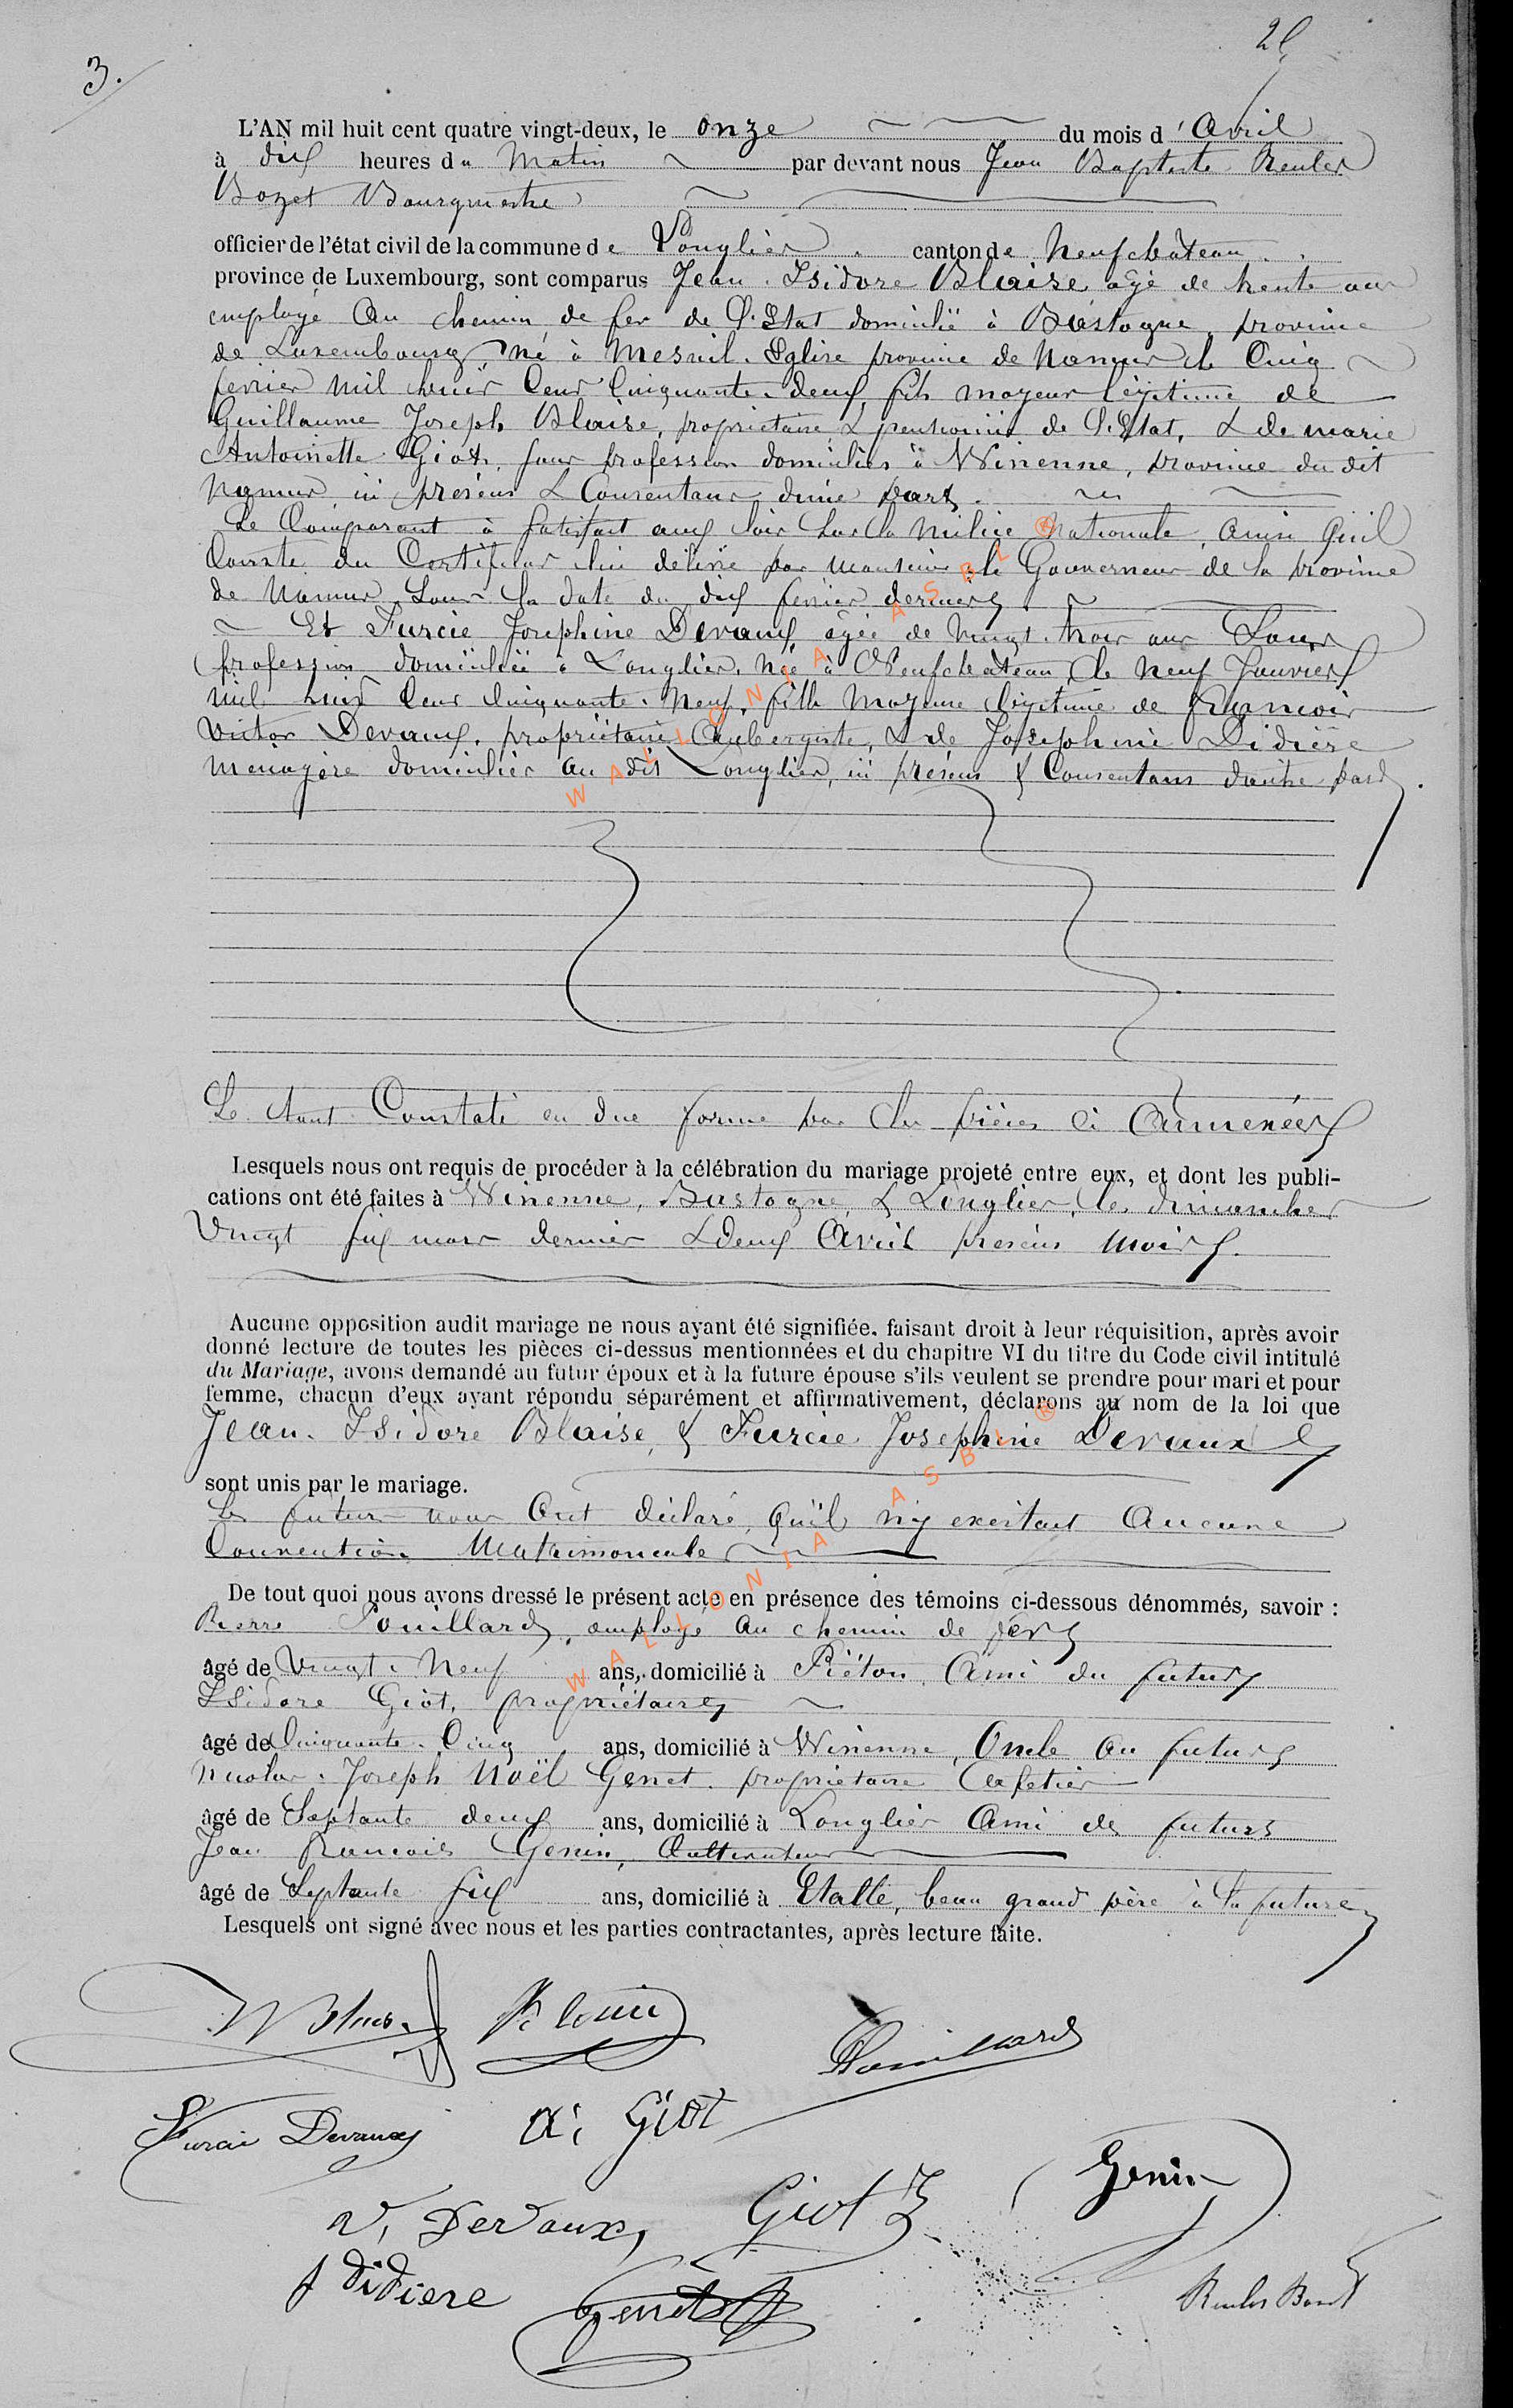 3.
L'AN mil huit cent quatre vingt-deux, le onze du mois d'Avril
à dix heures du Matin par devant nous Jean Baptiste Reuler
Bozet Bourgmestre
officier de l'état civil de la commune de Longlier. canton de Neufchâteau.
province de Luxembourg, sont comparus Jean Isidore Blaise âgé de trente ans
employé Au chemin de fer de l'Etat domicilié à Bastogne, province
de Luxembourg, Né à Mesnil-Eglise province de Namur le Cinq
fevrier mil huit Cent Cinquante-deux, fils mageur légitime de
Guillaume Joseph Blaise, propriétaire & pensionné de l'Etat, & de marie
Antoinette Giot, sans profession domiciliés à Winenne, province du dit
Namur ici présens & Consentans d'une part.
Le Comparant à satisfait aux lois sur la milice Nationale, ainsi qu'il
Conste du Certificat lui délivré par monsieur le Gouverneur de la province
de Namur sous la date du dix fevrier dernier
Et Furcie Josephine Devaux, agée de vingt-trois ans Sans
profession domiciliée à Longlier, née à Neufchateau le neuf Janvier
mil huit Cent Cinquante-Neuf, fille Mageure légitime de François
Victor Devaux, propriétaire Aubergiste, & de Josephine Didière
Menagère domiciliés Au dit Longlier, ici présens & Consentans d'autre part.
Le tout Constaté en due forme par les pièces ci Annexées
Lesquels nous ont requis de procéder à la célébration du mariage projeté entre eux, et dont les publi-
cations ont été faites à Winenne, Bastogne, & Longlier, les dimanches
Vingt six mars dernier & deux Avril présens mois.
Aucune opposition audit mariage ne nous ayant été signifiée, faisant droit à leur réquisition, après avoir
donné lecture de toutes les pièces ci-dessus mentionnées et du chapitre VI du titre du Code civil intitulé
du Mariage, avons demandé au futur époux et à la future épouse s'ils veulent se prendre pour mari et pour
femme, chacun d'eux ayant répondu séparément et affirmativement, déclarons au nom de la loi que
Jean Isidore Blaise & Furcie Josephine Devaux
sont unis par le mariage.
Les futurs nous Ont déclaré, qu'il n'y existait Aucune
Convention Matrimoniale
De tout quoi nous avons dressé le présent acte en présence des témoins ci-dessous dénommés, savoir :
Pierre Pouillard, employé au chemin de fer
âgé de Vingt-Neuf ans, domicilié à Piéton Ami du futur
Isidore Giot, propriétaire
âgé de Cinquante-Cinq ans, domicilié à Winenne, Oncle au futur
Nicolas Joseph Noël Genet propriétaire Cafetier
âgé de Septante deux ans, domicilié à Longlier Ami des futurs
Jean François Genin, Cultivateur
âgé de Septante six ans, domicilié à Etalle, beau grand père à la future
Lesquels ont signé avec nous et les parties contractantes, après lecture faite.
Pouillard
Furcie Devaux
A. Giot
Genin
V. Devaux
Giot I
J Didiere
Genet
Reuler Bozet
WALLONIA ASBL ®
WALLONIA ASBL ®